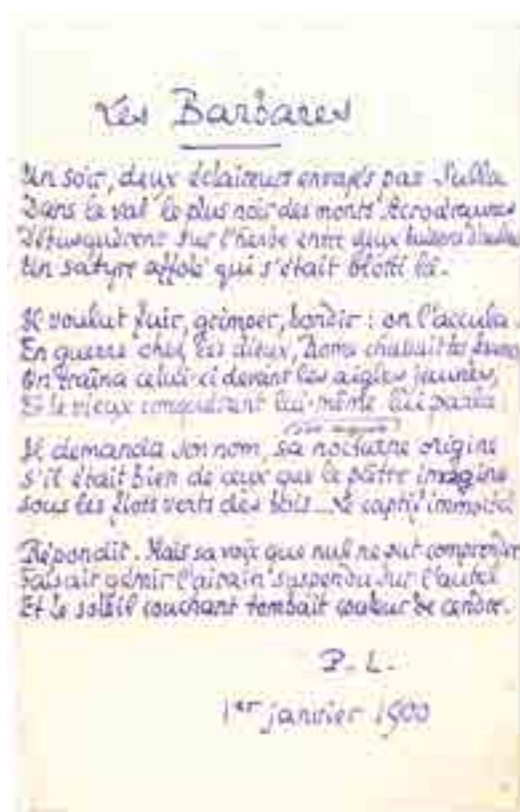 Les Barbares
Un soir, deux éclaireurs envoyés par Sulla
Dans le val le plus noir des monts
Débusquèrent sur l'herbe entre deux buissons
Un satyre affolé qui s'était blotti là.
Il voulut fuir, grimper, bondir : on l'accula.
En guerre chez les dieux, Rome chassait les faunes
On traîna celui-ci devant les aigles jaunes,
Et le vieux conquérant lui-même lui parla
Il demanda son nom, sa nocturne origine
S'il était bien de ceux que le pâtre imagine
Sous les flots verts des bois... Le captif
Répondit. Mais sa voix que nul ne sut comprendre
Faisait gémir l'airain suspendu sur l'autel
Et le soleil couchant tombait couleur de cendre.
P. L.
1er janvier 1900